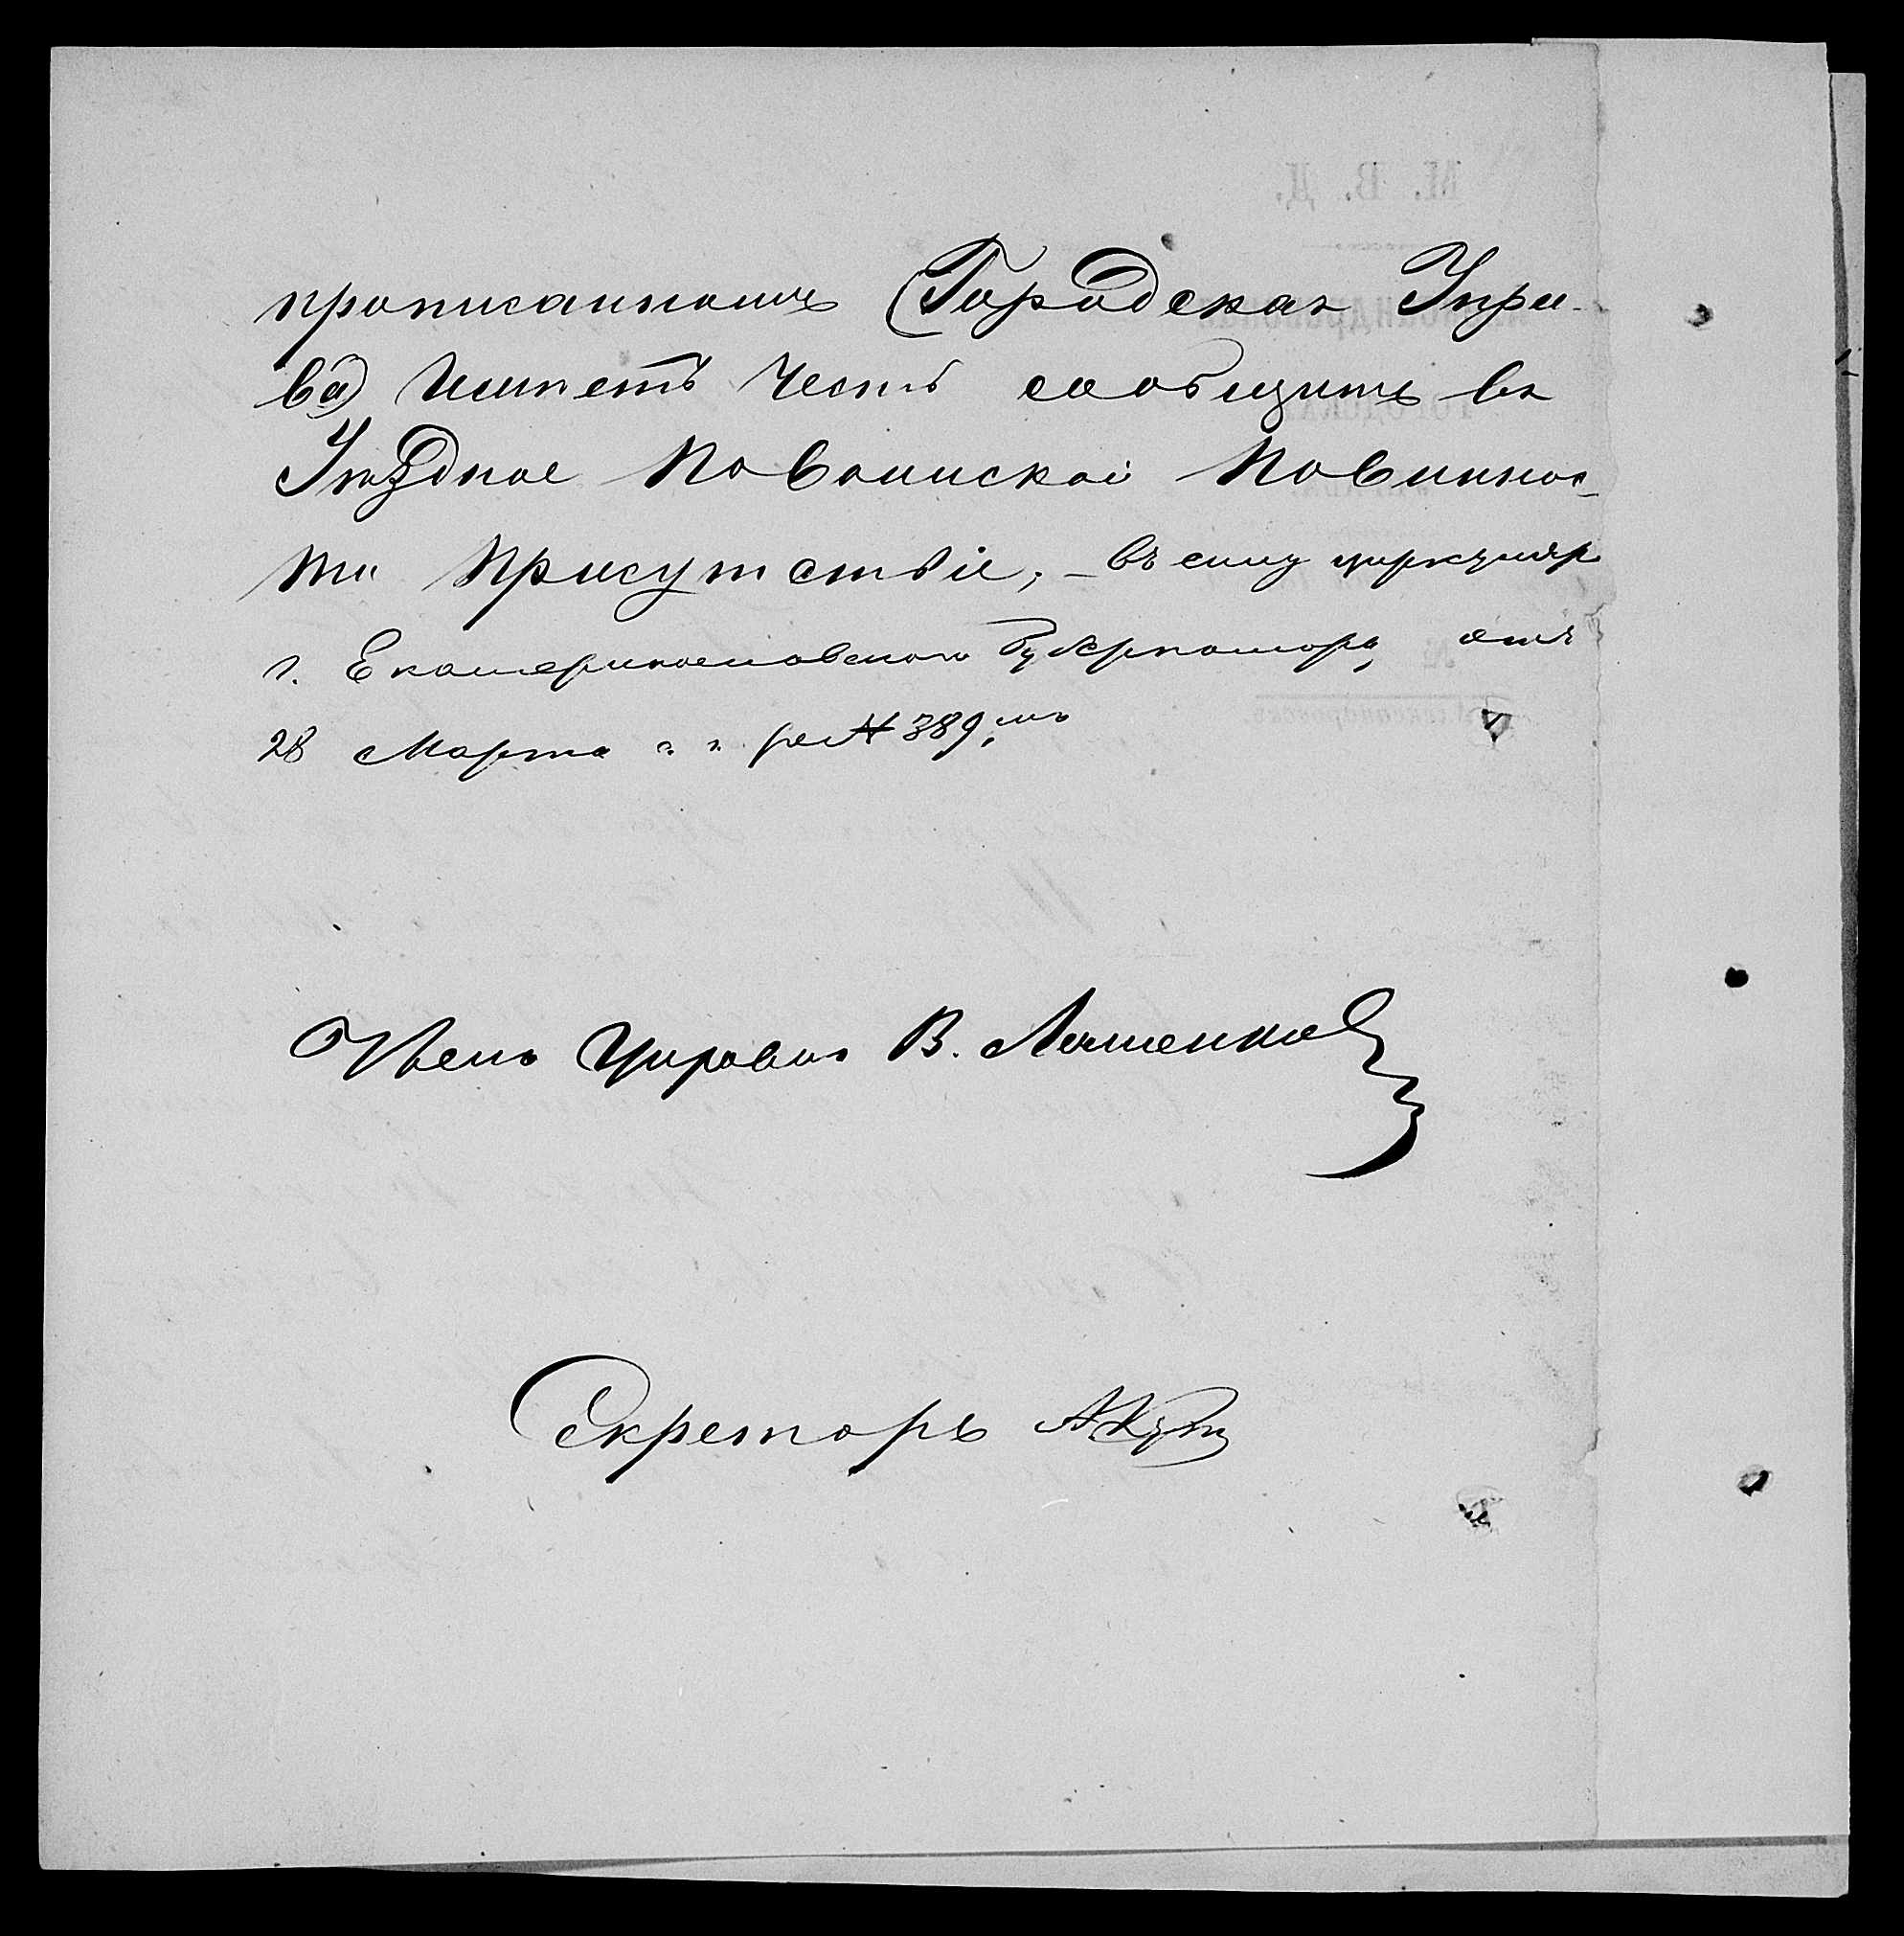 прописанномъ Городская Упра-
ва имѣетъ честь сообщить въ
Уѣздное по воинской повиннос-
ти присутствіе, – въ силу циркуляр
г. Екатеринославскаго Губернатора, отъ
28 Марта с. г. за № 389.мъ
Членъ Управы В.
Секретарь